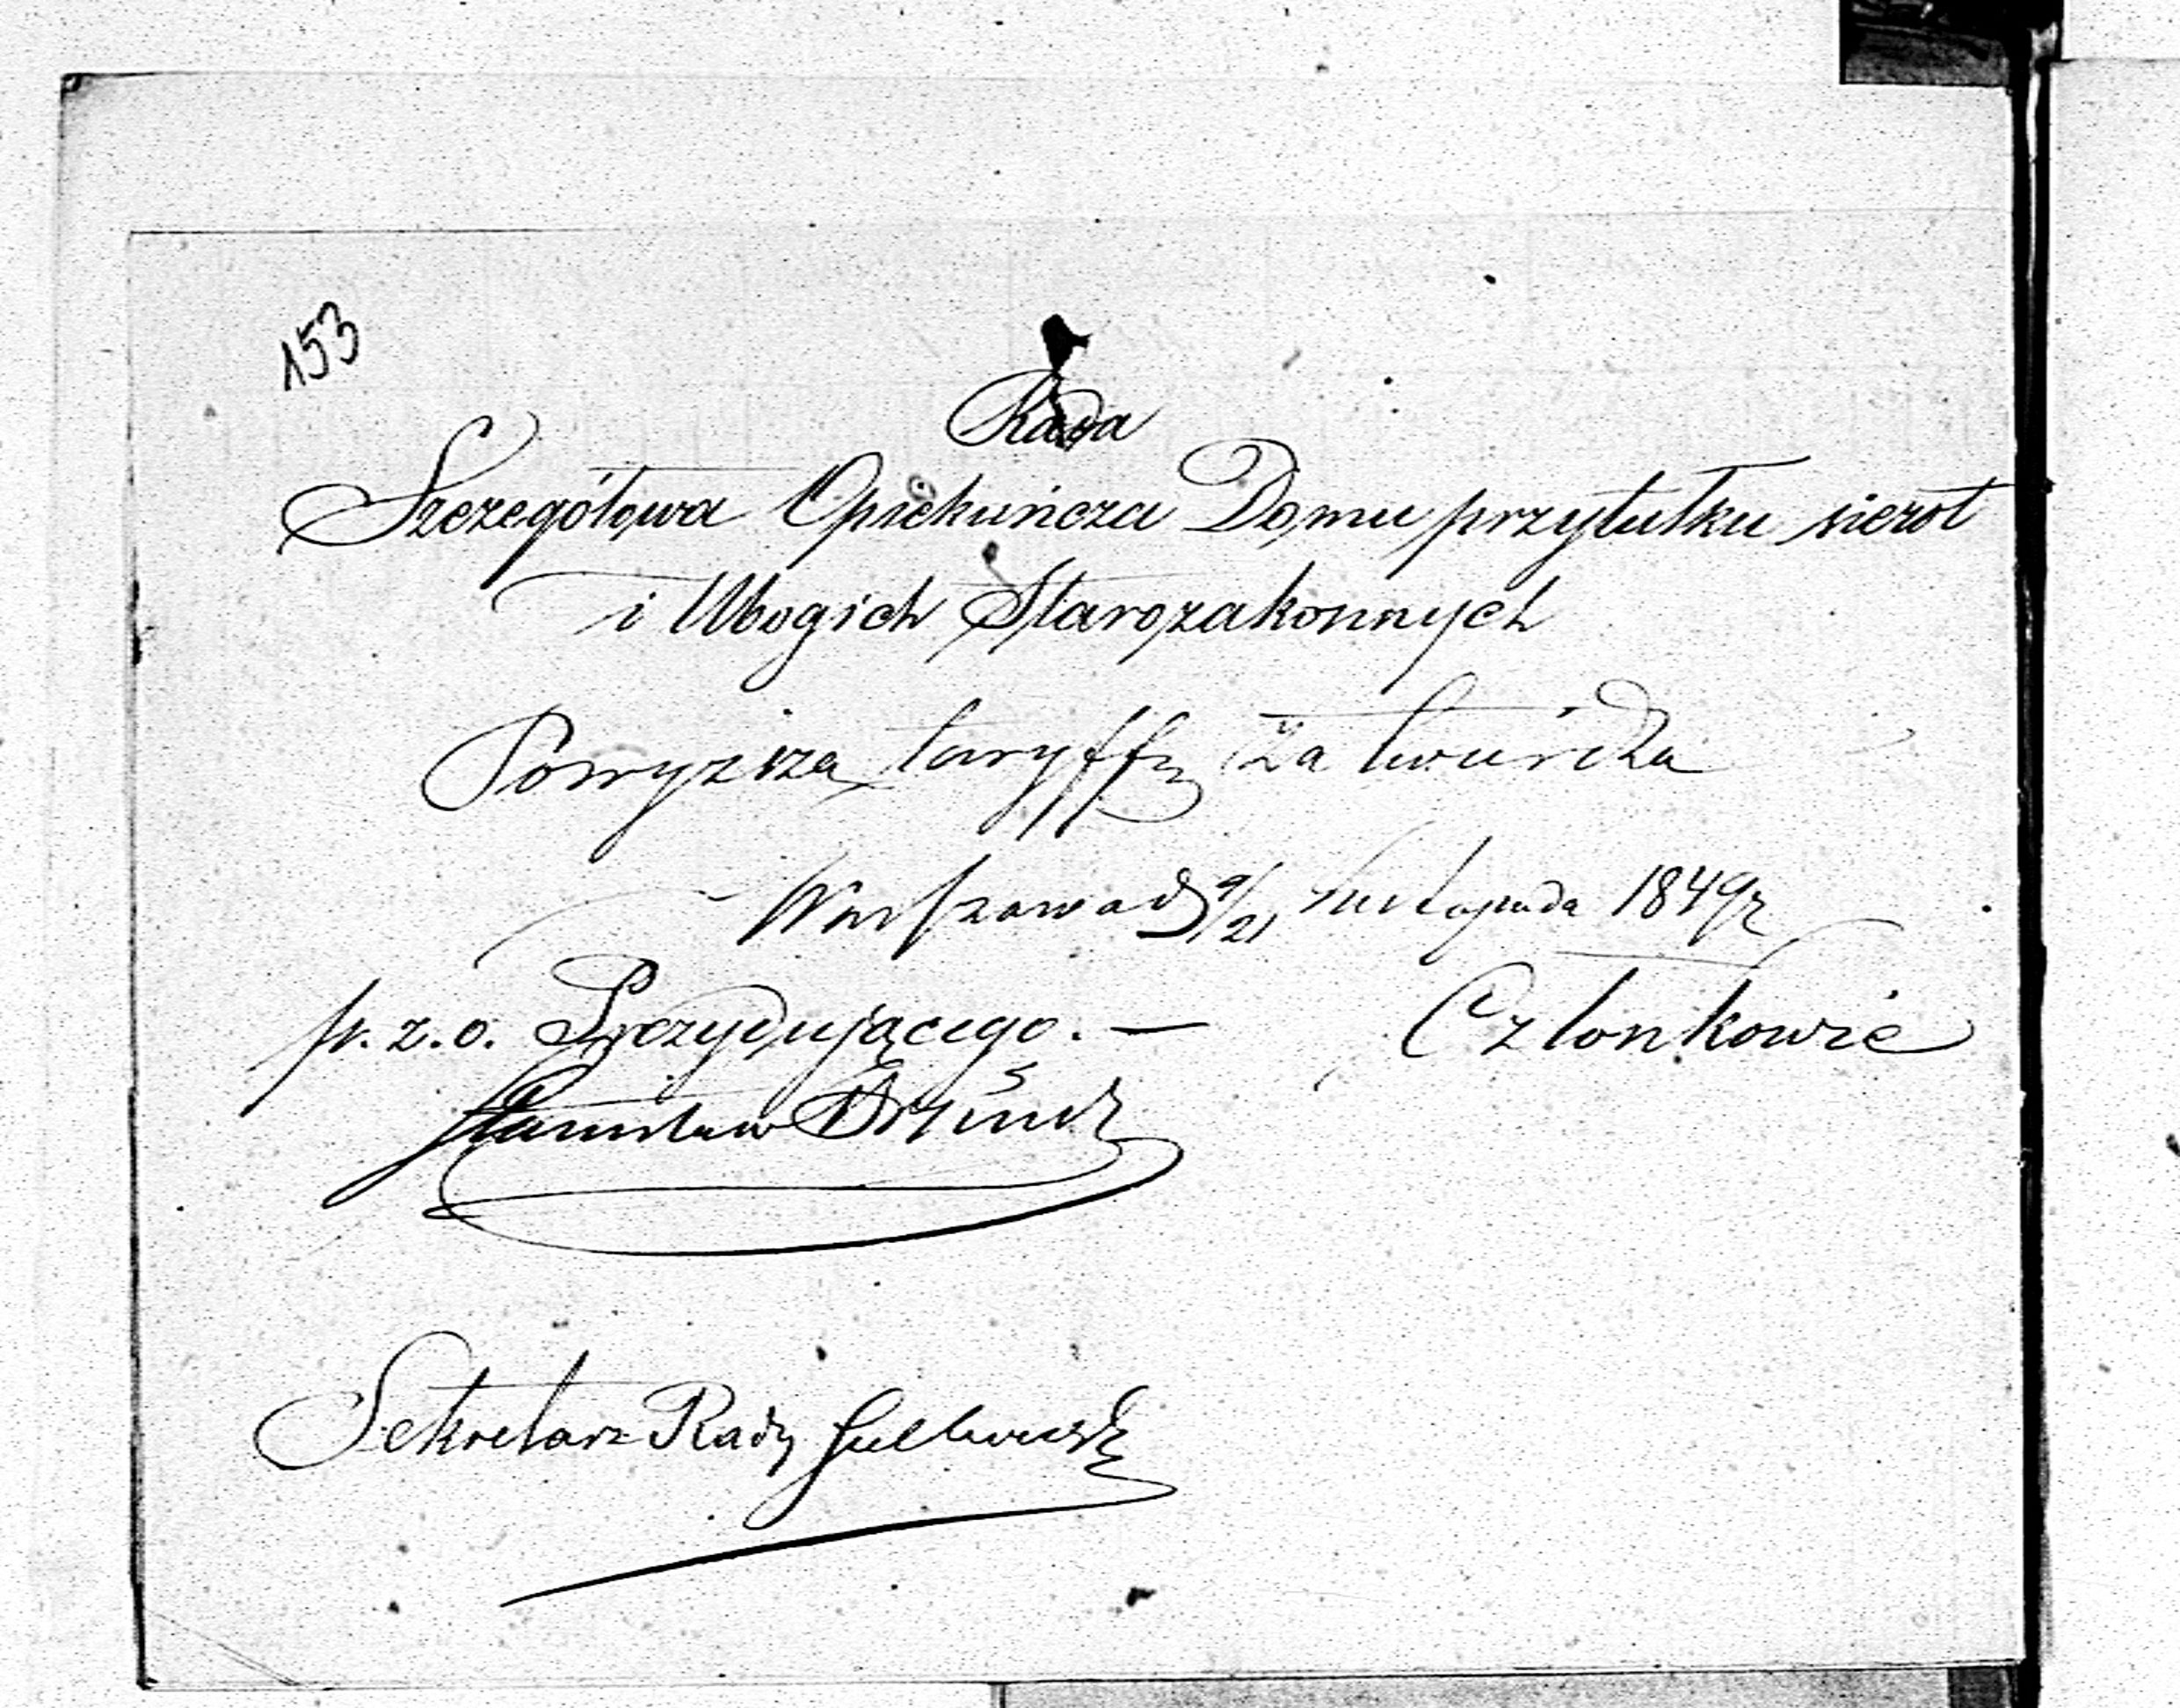 153
Rada
Szczegółowa Opiekuńcza Domu przytułku sierot
i Ubogich Starozakonnych
Powyższą taryffę zatwierdza
Warszawa d 9/21 Listopada 1849 r
p. z. o. Prezydującego. —
Członkowie
Stanisław
Sekretarz Rady